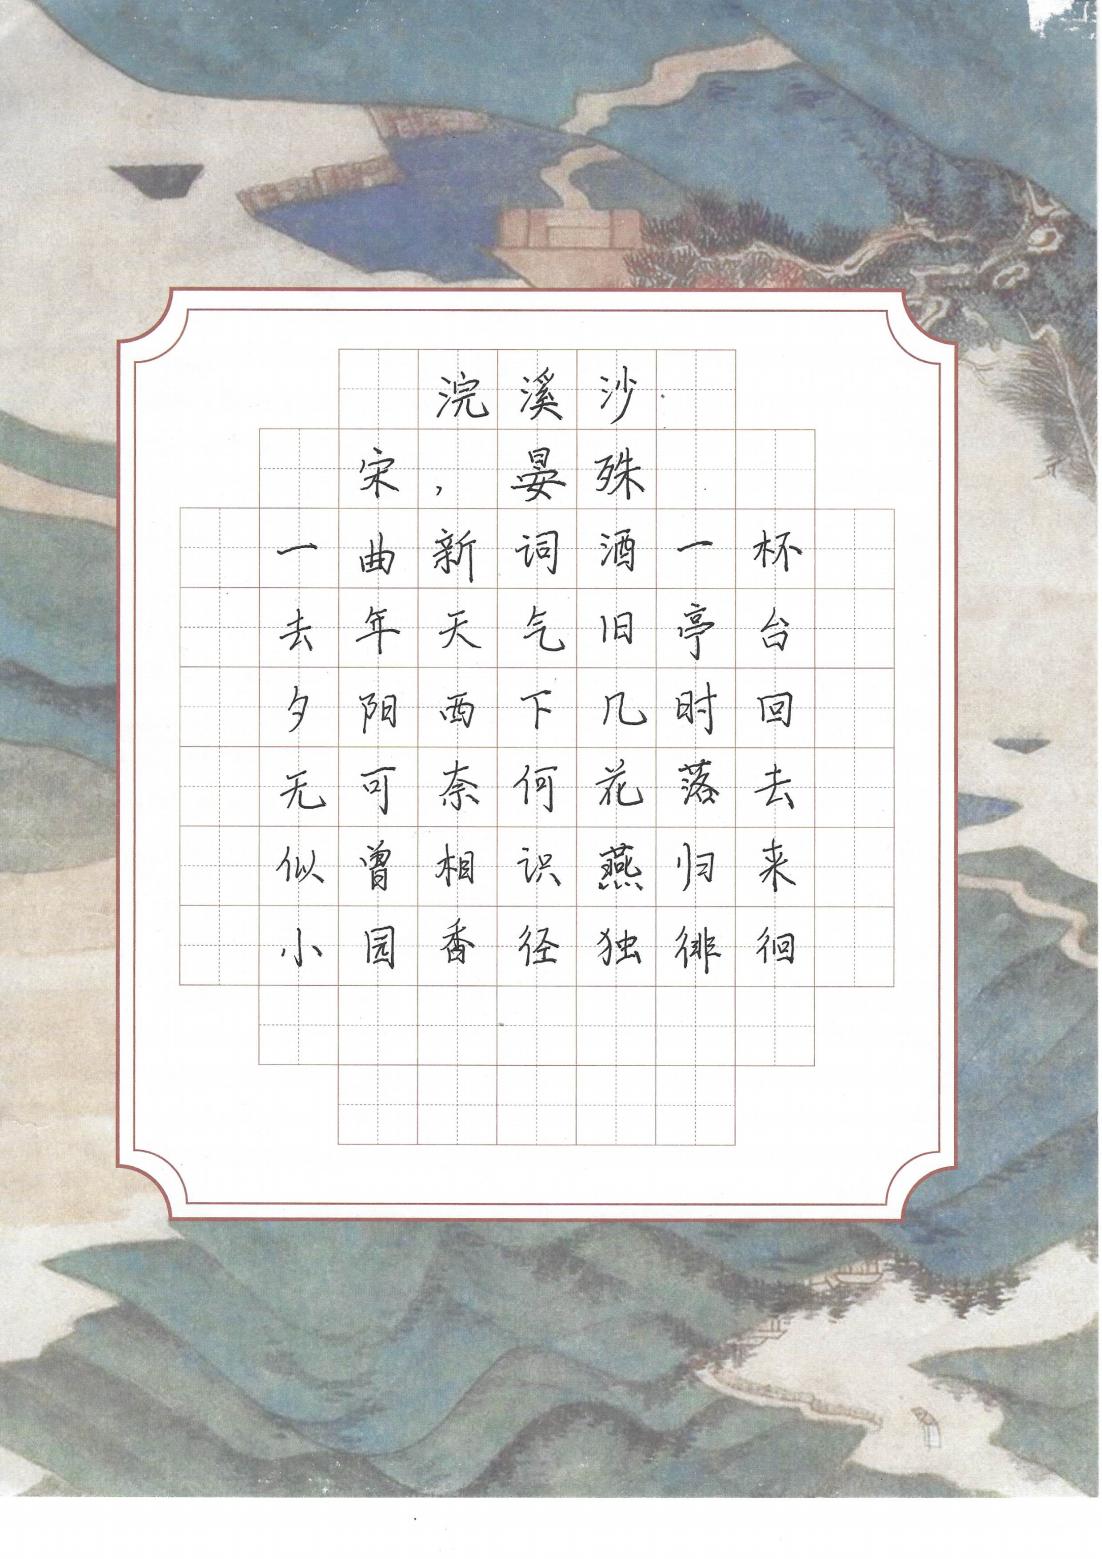 浣溪沙
宋，晏殊
一曲新词酒一杯
去年天气旧亭台
夕阳西下几时回
无可奈何花落去
似曾相识燕归来
小园香径独徘徊